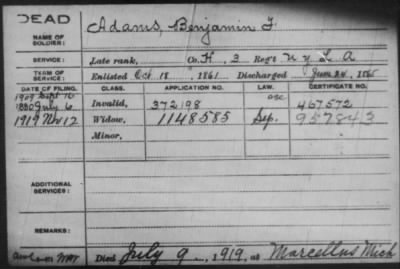 DEAD
NAME OF SOLDIER: Adams, Benjamin F.
SERVICE: Late rank, Co. H, 3 Reg't N Y L A
TERM OF SERVICE: Enlisted Oct 18, 1861 Discharged June 24, 1865
DATE OF FILING. CLASS. APPLICATION NO. LAW. CERTIFICATE NO.
1909 Sept 16
1880 July 6 Invalid, 372198 467572
1919 Nov 12 Widow, 1148585 Sep. 957843
Minor,
ADDITIONAL SERVICES:
REMARKS:
Died July 9, 1919, at Marcellus Mich